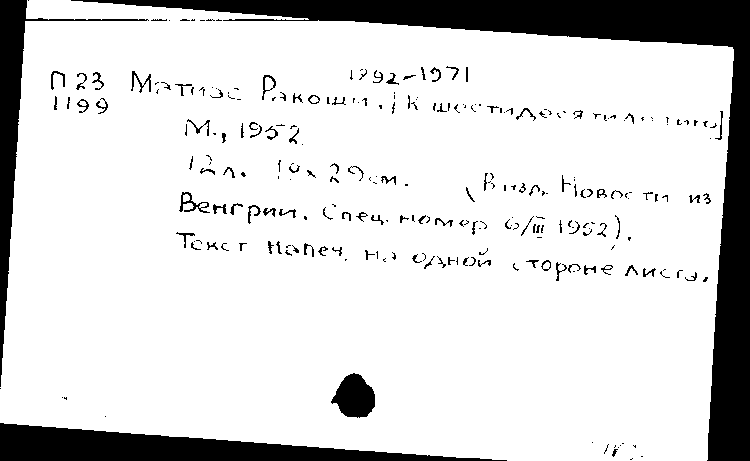 1892-1971
П 23 Матиас Ракоши. [К шестидесятилетию]
1199
М., 1952
12 л. 19 x 29 см. (В изд. Новости из
Венгрии. Спец. номер 6/III 1952).
Текст напеч. на одной стороне листа.